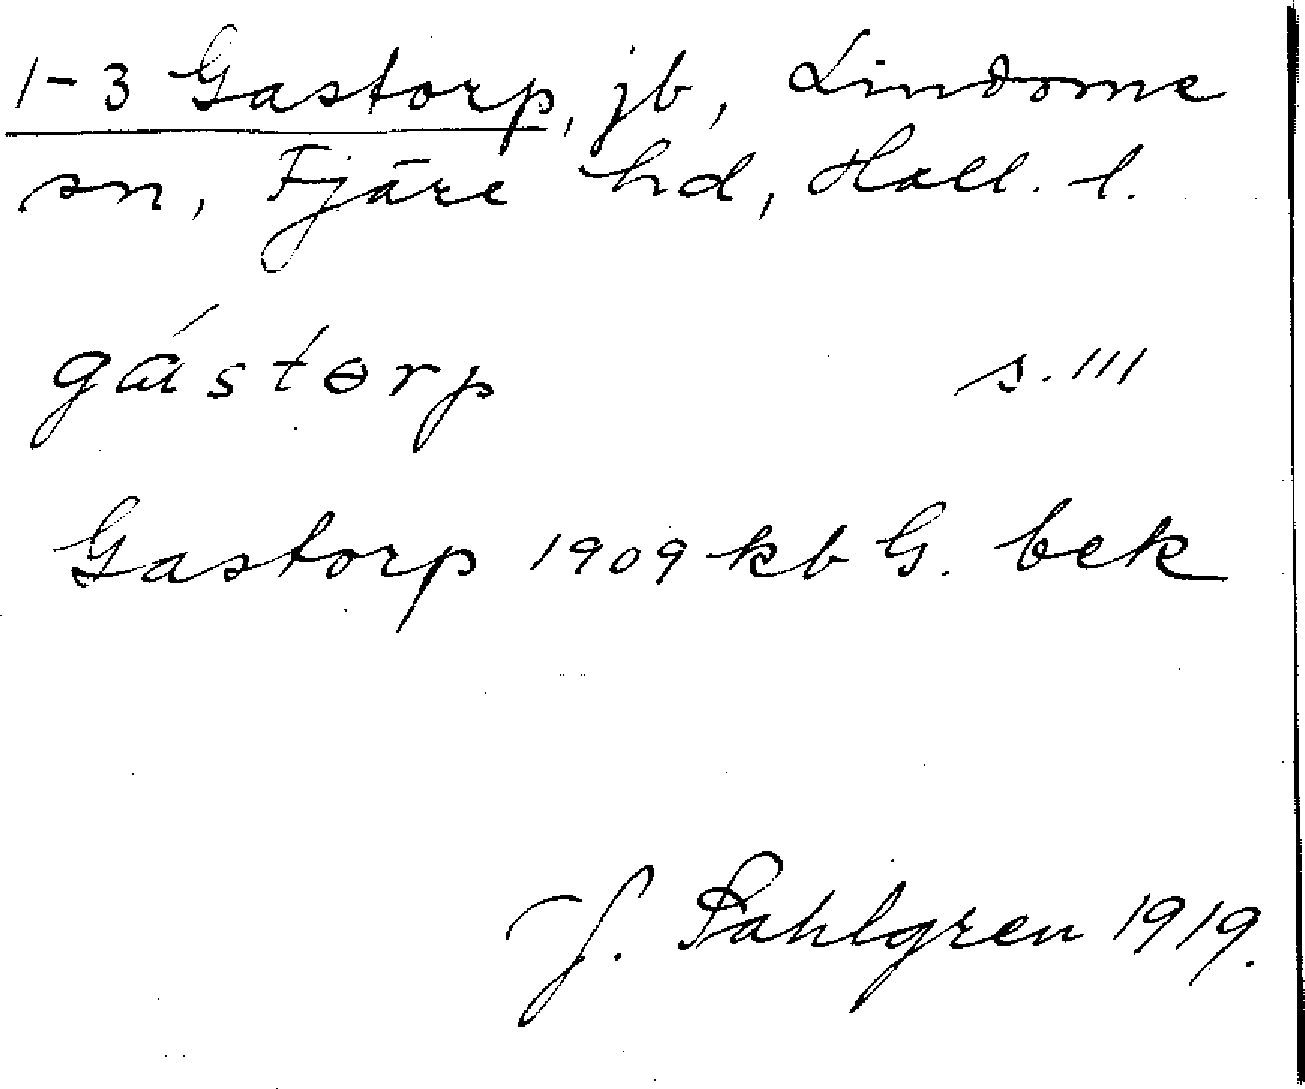 1-3 Gastorp, jb, Lindome
sn, Fjäre hd, Hall. l.
gástɵrp s. 111
Gastorp 1909 kb G. bek
J. Sahlgren 1919.